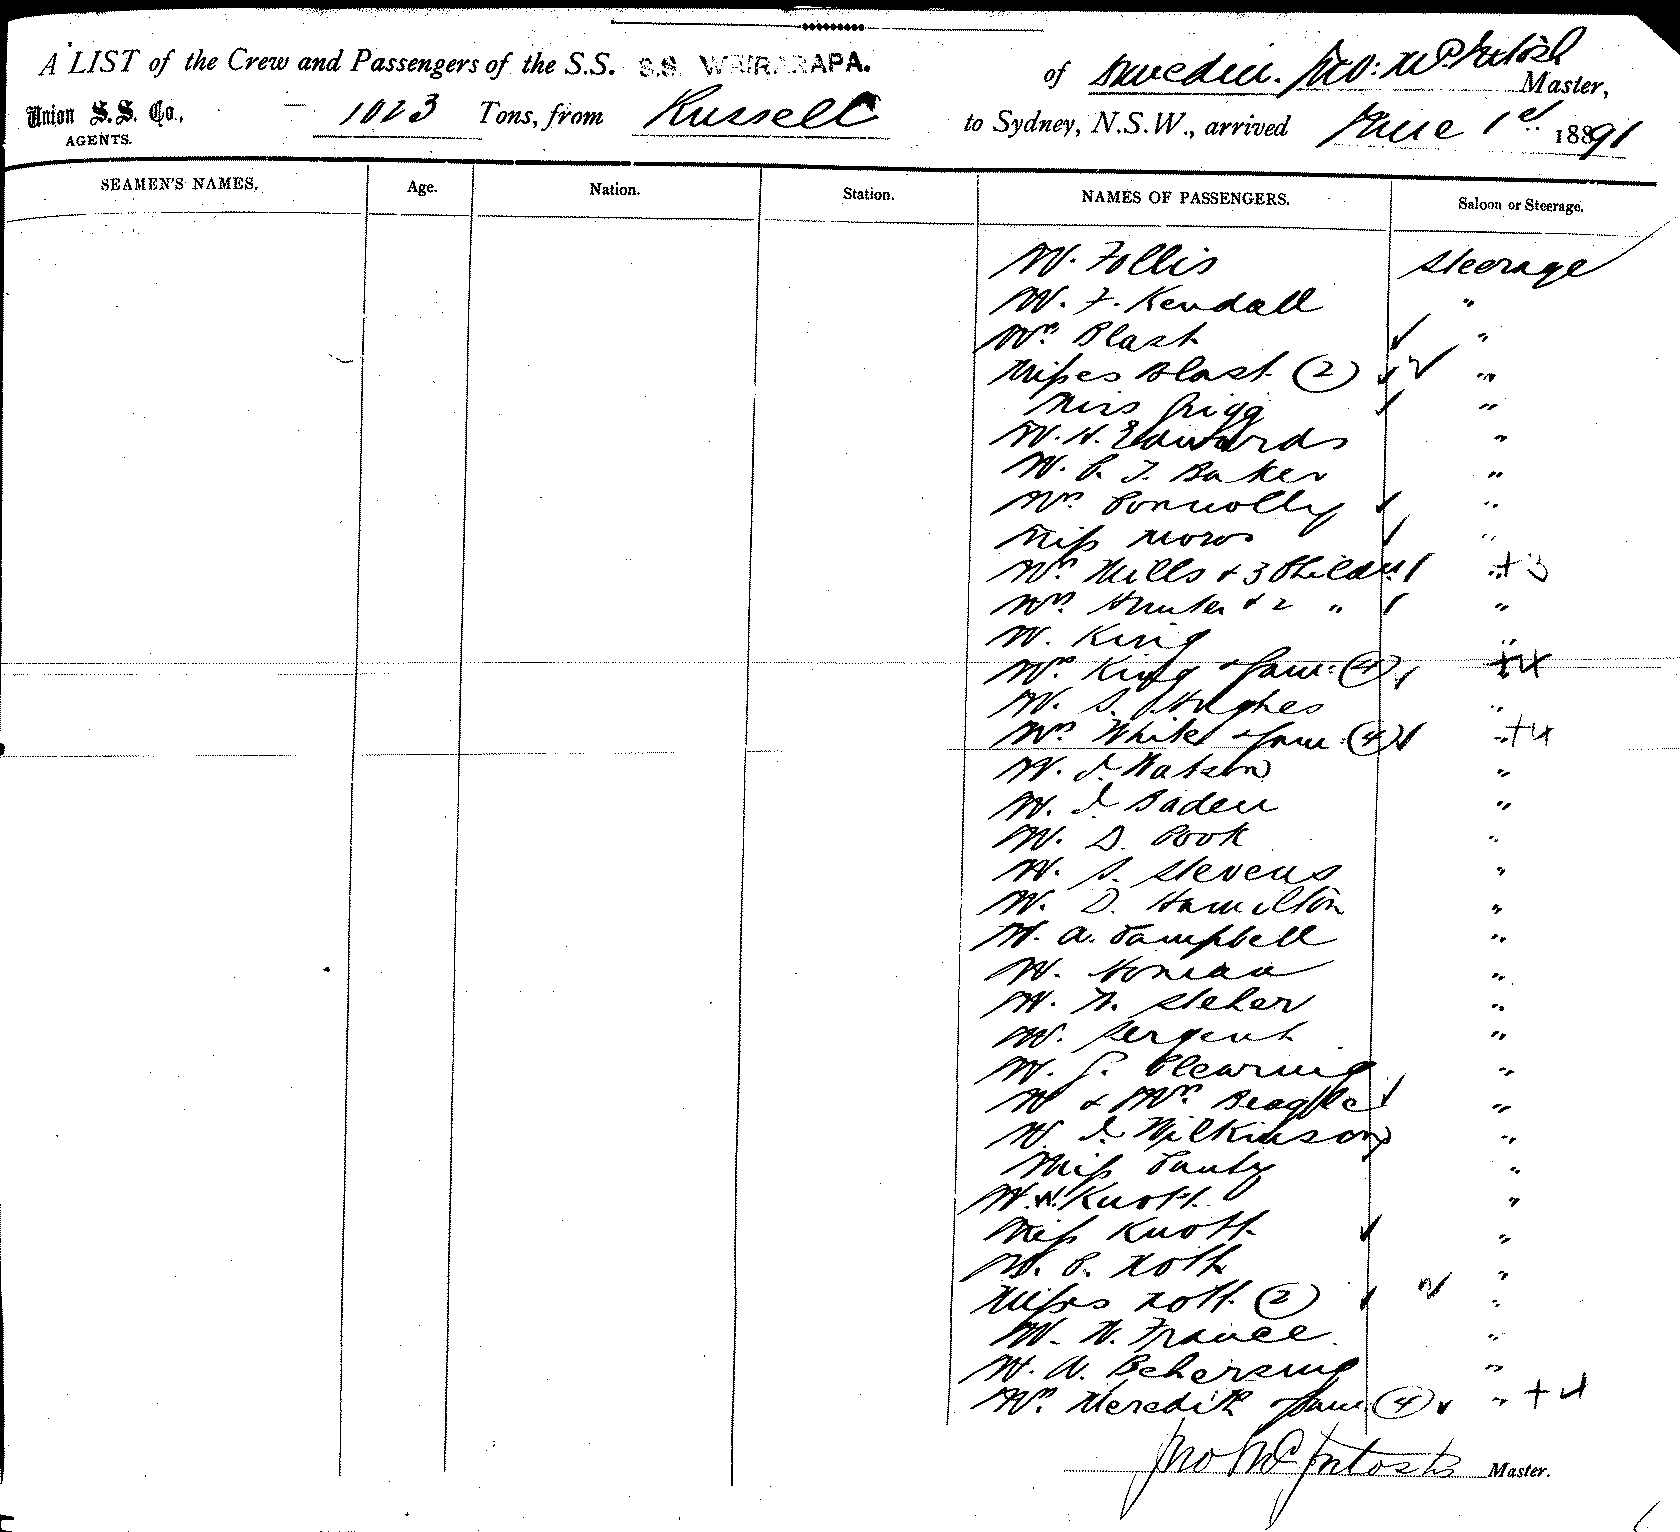 A LIST of the Crew and Passengers of the S.S. S.S. WAIRARAPA. of Dunedin. Jno: McIntosh Master,
Union S.S. Co., AGENTS. 1023 Tons, from Russell to Sydney, N.S.W., arrived June 1st 1891
SEAMEN'S NAMES. Age. Nation. Station. NAMES OF PASSENGERS. Saloon or Steerage.
Mr. Follis Steerage
Mr. F. Kendall "
Mrs Blast "
Misses Blast (2) "
Miss Grigg "
Mr. H. Edwards "
Mr. C. J. Baker "
Mrs Connolly "
Miss "
Mrs Mills & 3 Childn " +3
Mrs Hunter & 2 " "
Mr. King "
Mrs King & fam: (4) +4
Mr. S. Hughes "
Mrs White & fam: (4) " +4
Mr. J. Watson "
Mr. J. Baden "
Mr. D. Cook "
Mr. S. Stevens "
Mr. D. Hamilton "
Mr. A. Campbell "
Mr. "
Mr. W. "
Mr. Sergent "
Mr. G. Clearing "
Mr & Mrs Beagle "
Mr. J. Wilkinson "
Miss "
Mr. W. Knott "
Miss Knott "
Mr. C. Nott "
Misses Nott (2) "
Mr. W. France "
Mr. A. "
Mrs Meredith & fam (4) " +4
Jno McIntosh Master.